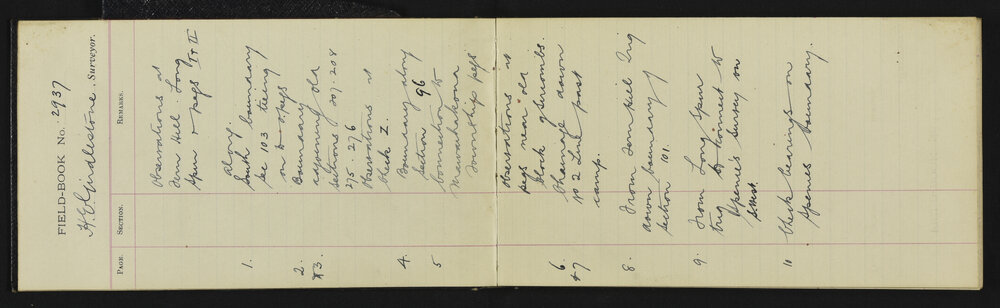 FIELD-BOOK No. 2937
H.E. Girdlestone, Surveyor.
PAGE. SECTION. REMARKS.
Observations at
Fern Hill. Long
Spur & pegs I & II
1. along
South boundary
Sec 103 tieing
on D & pegs
2. Boundary
& 3. adjoining old
sections 207. 208
275. 276
Observations at
Check Z.
4. Boundary along
Section 96
5 connection to
Mawahakona
Township pegs
Observations at
pegs near old
block g Smcombs.
6. Chainage down
& 7 No 2 Line past
camp.
8. From Fern Hill Trig
down boundary
section 101.
9. From Long Spur
trig to connect to
Spence's survey on
10 Check bearings on
Spences boundary.